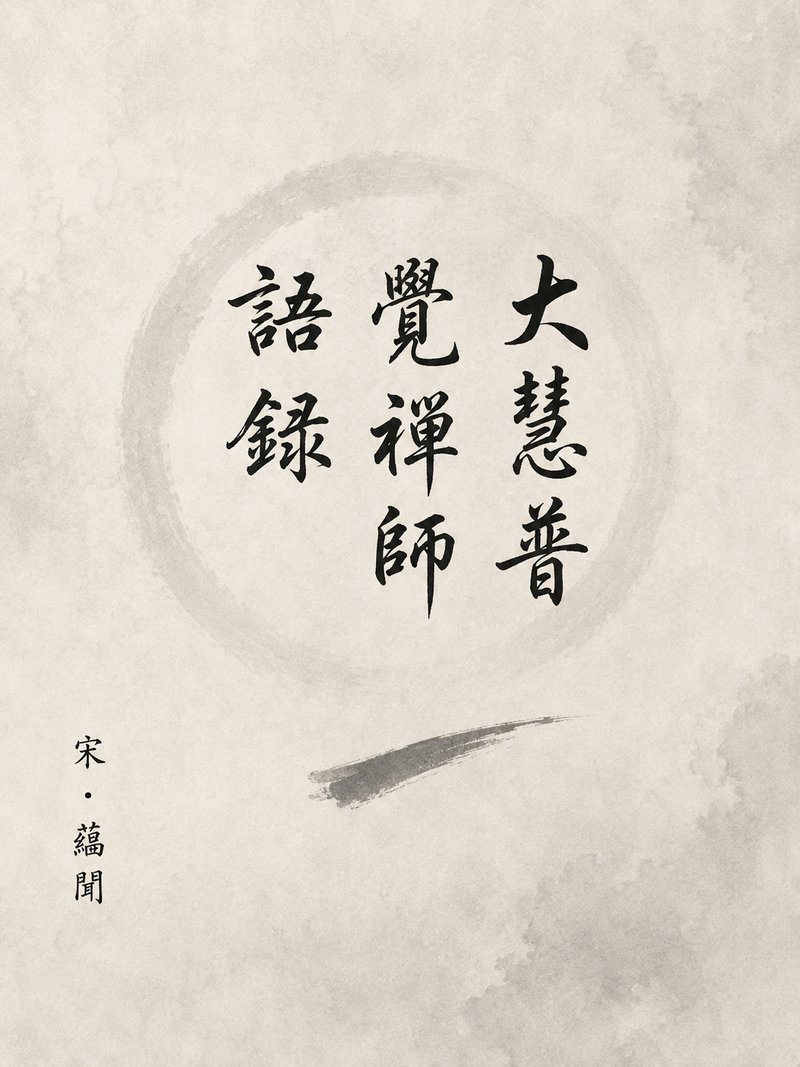 大慧普
覺禪師
語録
宋·蘊聞